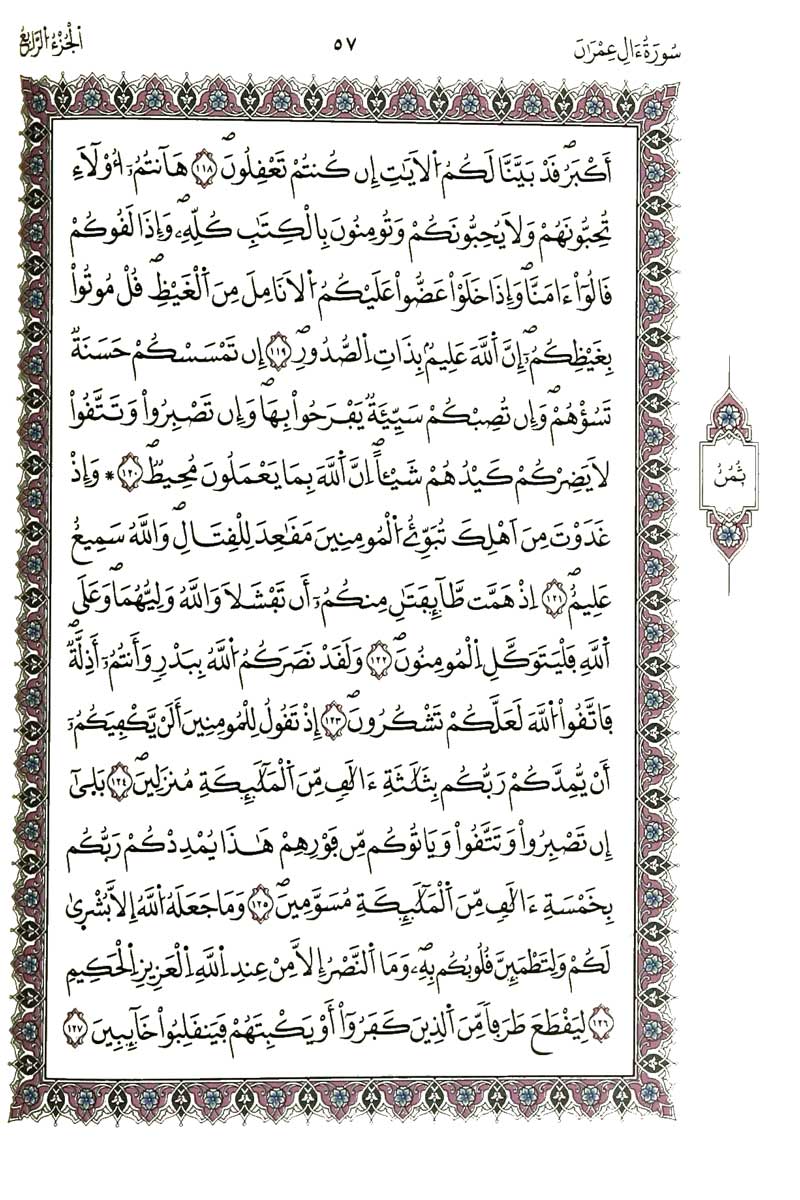 سُورَةُ ءَالِ عِمْرَانَ
٥٧
اَلْجُزْءُ الرَّابِعُ
أَكْبَرُۖ قَدْ بَيَّنَّا لَكُمُ اُ۬لَايَٰتِ إِن كُنتُمْ تَعْقِلُونَۖ ١١٨ هَآنتُمُۥٓ أُوْلَآءِ
تُحِبُّونَهُمْ وَلَا يُحِبُّونَكُمْ وَتُومِنُونَ بِالْكِتَٰبِ كُلِّهِۦۖ وَإِذَا لَقُوكُمْ
قَالُوٓاْ ءَامَنَّاۖ وَإِذَا خَلَوْاْ عَضُّواْ عَلَيْكُمُ اُ۬لَانَامِلَ مِنَ اَ۬لْغَيْظِۖ قُلْ مُوتُواْ
بِغَيْظِكُمُۥٓۖ إِنَّ اَ۬للَّهَ عَلِيمُۢ بِذَاتِ اِ۬لصُّدُورِۖ ١١٩ إِن تَمْسَسْكُمْ حَسَنَةٞ
تَسُؤْهُمْۖ وَإِن تُصِبْكُمْ سَيِّئَةٞ يَفْرَحُواْ بِهَاۖ وَإِن تَصْبِرُواْ وَتَتَّقُواْ
لَا يَضِرْكُمْ كَيْدُهُمْ شَيْـٔاًۖ اِنَّ اَ۬للَّهَ بِمَا يَعْمَلُونَ مُحِيطٞۖ ١٢٠ * وَإِذْ
غَدَوْتَ مِنَ اَهْلِكَ تُبَوِّئُ اُ۬لْمُومِنِينَ مَقَٰعِدَ لِلْقِتَالِۖ وَاللَّهُ سَمِيعٌ
عَلِيمٌۖ ١٢١ اِذْ هَمَّت طَّآئِفَتَٰنِ مِنكُمُۥٓ أَن تَفْشَلَا وَاللَّهُ وَلِيُّهُمَاۖ وَعَلَى
اَ۬للَّهِ فَلْيَتَوَكَّلِ اِ۬لْمُومِنُونَۖ ١٢٢ وَلَقَدْ نَصَرَكُمُ اُ۬للَّهُ بِبَدْرٖ وَأَنتُمُۥٓ أَذِلَّةٞۖ
فَاتَّقُواْ اُ۬للَّهَ لَعَلَّكُمْ تَشْكُرُونَۖ ١٢٣ إِذْ تَقُولُ لِلْمُومِنِينَ أَلَنْ يَّكْفِيَكُمُۥٓ
أَنْ يُّمِدَّكُمْ رَبُّكُم بِثَلَٰثَةِ ءَالَٰفٖ مِّنَ اَ۬لْمَلَٰٓئِكَةِ مُنزَلِينَۖ ١٢٤ بَل۪ىٰٓ
إِن تَصْبِرُواْ وَتَتَّقُواْ وَيَاتُوكُم مِّن فَوْرِهِمْ هَٰذَا يُمْدِدْكُمْ رَبُّكُم
بِخَمْسَةِ ءَالَٰفٖ مِّنَ اَ۬لْمَلَٰٓئِكَةِ مُسَوَّمِينَۖ ١٢٥ وَمَا جَعَلَهُ اُ۬للَّهُ إِلَّا بُشْر۪ىٰ
لَكُمْ وَلِتَطْمَئِنَّ قُلُوبُكُم بِهِۦۖ وَمَا اَ۬لنَّصْرُ إِلَّا مِنْ عِندِ اِ۬للَّهِ اِ۬لْعَزِيزِ اِ۬لْحَكِيمِ
١٢٦ لِيَقْطَعَ طَرَفاٗ مِّنَ اَ۬لذِينَ كَفَرُوٓاْ أَوْ يَكْبِتَهُمْ فَيَنقَلِبُواْ خَآئِبِينَ ١٢٧
ثُمُنُ